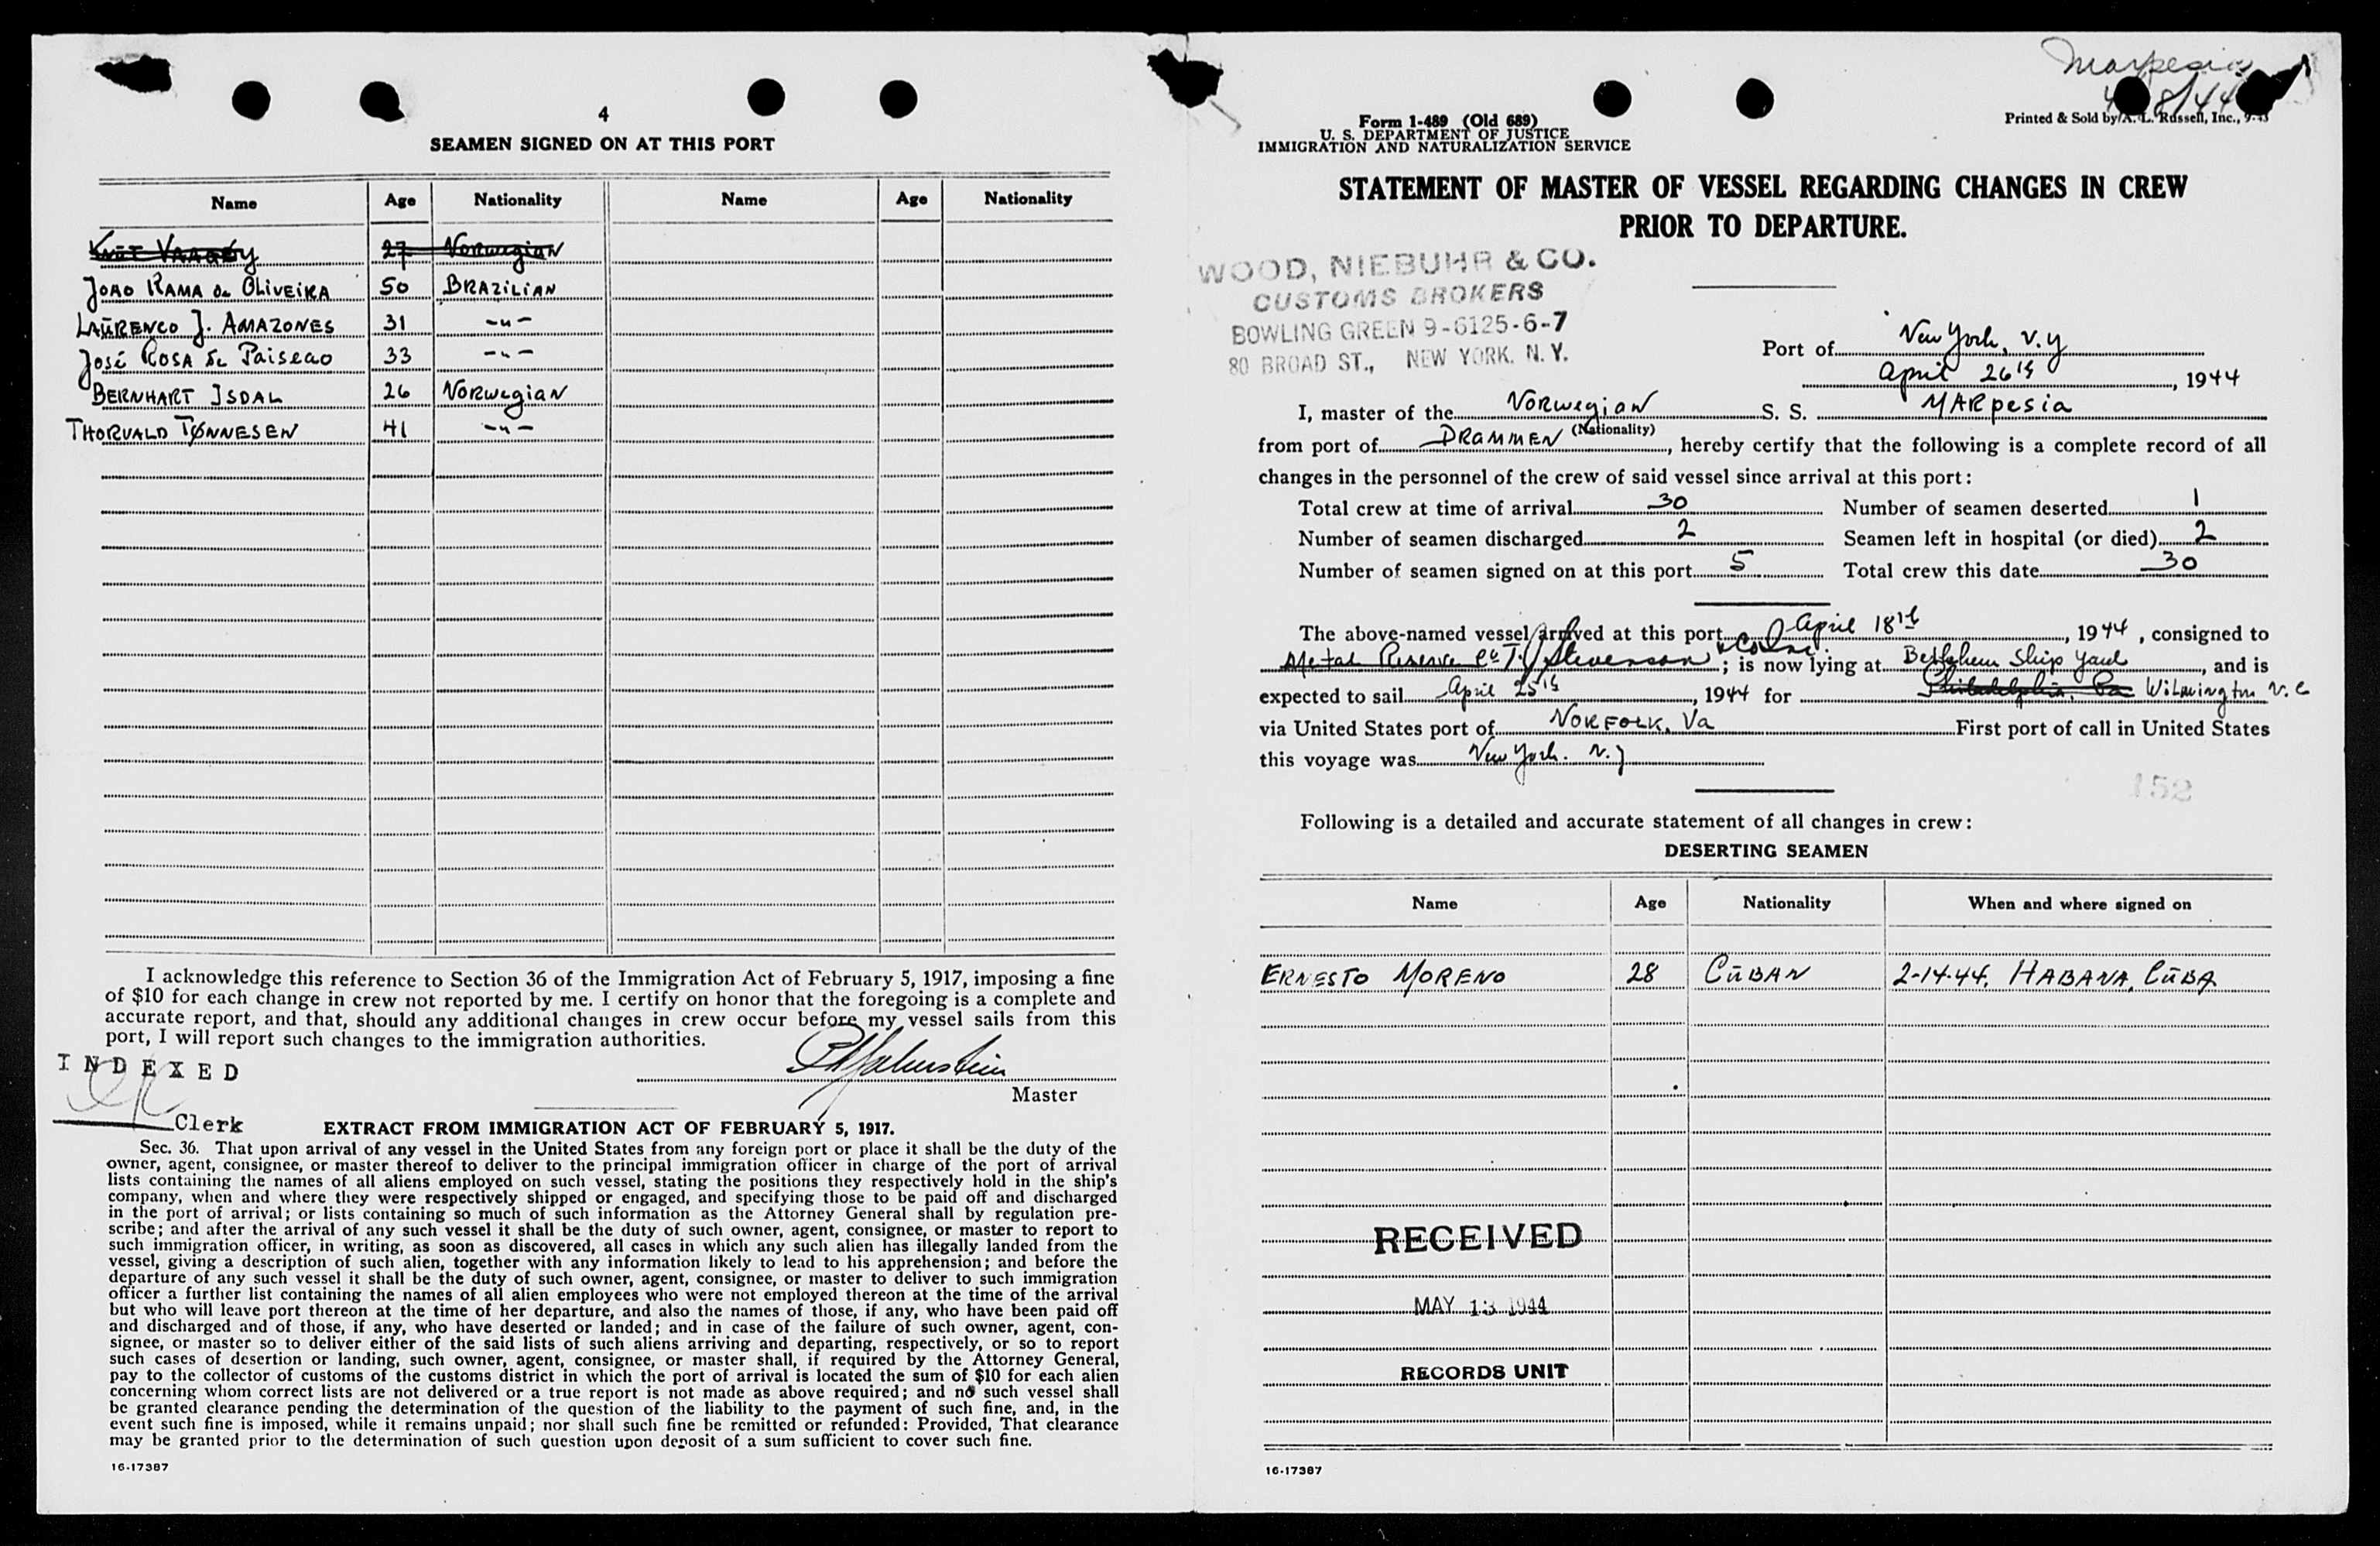 4
SEAMEN SIGNED ON AT THIS PORT
Name Age Nationality Name Age Nationality
27 Norwegian
JOAO RAMA de OLIVEIRA 50 BRAZILIAN
LAURENCO J. AMAZONES 31 -"-
José ROSA de Paiseao 33 -"-
BERNHART ISDAL 26 NORWEGIAN
THORVALD TØNNESEN 41 -"-
I acknowledge this reference to Section 36 of the Immigration Act of February 5, 1917, imposing a fine
of $10 for each change in crew not reported by me. I certify on honor that the foregoing is a complete and
accurate report, and that, should any additional changes in crew occur before my vessel sails from this
port, I will report such changes to the immigration authorities.
INDEXED
Master
Clerk
EXTRACT FROM IMMIGRATION ACT OF FEBRUARY 5, 1917.
Sec. 36. That upon arrival of any vessel in the United States from any foreign port or place it shall be the duty of the
owner, agent, consignee, or master thereof to deliver to the principal immigration officer in charge of the port of arrival
lists containing the names of all aliens employed on such vessel, stating the positions they respectively hold in the ship's
company, when and where they were respectively shipped or engaged, and specifying those to be paid off and discharged
in the port of arrival; or lists containing so much of such information as the Attorney General shall by regulation pre-
scribe; and after the arrival of any such vessel it shall be the duty of such owner, agent, consignee, or master to report to
such immigration officer, in writing, as soon as discovered, all cases in which any such alien has illegally landed from the
vessel, giving a description of such alien, together with any information likely to lead to his apprehension; and before the
departure of any such vessel it shall be the duty of such owner, agent, consignee, or master to deliver to such immigration
officer a further list containing the names of all alien employees who were not employed thereon at the time of the arrival
but who will leave port thereon at the time of her departure, and also the names of those, if any, who have been paid off
and discharged and of those, if any, who have deserted or landed; and in case of the failure of such owner, agent, con-
signee, or master so to deliver either of the said lists of such aliens arriving and departing, respectively, or so to report
such cases of desertion or landing, such owner, agent, consignee, or master shall, if required by the Attorney General,
pay to the collector of customs of the customs district in which the port of arrival is located the sum of $10 for each alien
concerning whom correct lists are not delivered or a true report is not made as above required; and no such vessel shall
be granted clearance pending the determination of the question of the liability to the payment of such fine, and, in the
event such fine is imposed, while it remains unpaid; nor shall such fine be remitted or refunded: Provided, That clearance
may be granted prior to the determination of such question upon deposit of a sum sufficient to cover such fine.
16-17387
Marpesia
Form I-489 (Old 689)
U. S. DEPARTMENT OF JUSTICE
IMMIGRATION AND NATURALIZATION SERVICE
Printed & Sold by A. L. Russell, Inc., 9-43
STATEMENT OF MASTER OF VESSEL REGARDING CHANGES IN CREW
PRIOR TO DEPARTURE.
WOOD, NIEBUHR & CO.
CUSTOMS BROKERS
BOWLING GREEN 9-6125-6-7
80 BROAD ST., NEW YORK. N. Y.
Port of New York, N.Y
April 26th, 1944
I, master of the Norwegian S. S. MARpesia
(Nationality)
from port of DRAMMEN, hereby certify that the following is a complete record of all
changes in the personnel of the crew of said vessel since arrival at this port:
Total crew at time of arrival 30 Number of seamen deserted 1
Number of seamen discharged 2 Seamen left in hospital (or died) 2
Number of seamen signed on at this port 5 Total crew this date 30
The above-named vessel arrived at this port April 18th, 1944, consigned to
Metal Reserve Co T. J Stevenson & Co Inc.; is now lying at Bethlehem Ship Yard, and is
expected to sail April 25th, 1944 for Philadelphia, Pa Wilmington N.C
via United States port of NORFOLK, Va First port of call in United States
this voyage was New York. N.Y
152
Following is a detailed and accurate statement of all changes in crew:
DESERTING SEAMEN
Name Age Nationality When and where signed on
ERNESTO MORENO 28 CUBAN 2-14-44, HABANA, CUBA
RECEIVED
MAY 13 1944
RECORDS UNIT
16-17387